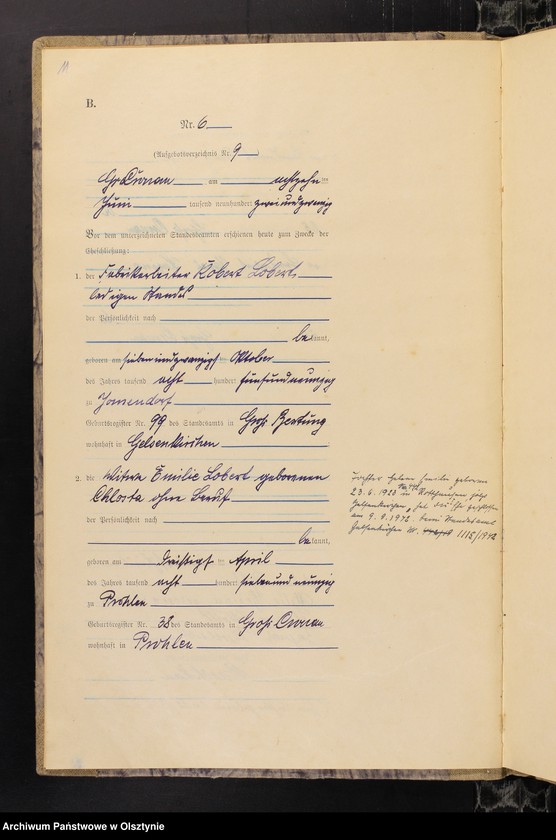 11
B.
Nr. 6
(Aufgebotsverzeichnis Nr. 9)
am achtzehnten
Juni tausend neunhundert zweiundzwanzig
Vor dem unterzeichneten Standesbeamten erschienen heute zum Zwecke der
Eheschließung:
1. der Fabrikarbeiter Robert Lobert,
ledigen Standes
der Persönlichkeit nach
bekannt,
geboren am siebenundzwanzigsten Oktober
des Jahres tausend acht hundert fünfundneunzig
zu Jomendorf
Geburtsregister Nr. 99 des Standesamts in Groß Bertung
wohnhaft in Gelsenkirchen
2. die Witwe Emilie Lobert geborenen
Chlosta ohne Beruf
der Persönlichkeit nach
bekannt,
geboren am dreißigsten April
des Jahres tausend acht hundert siebenundneunzig
zu Prohlen
Geburtsregister Nr. 38 des Standesamts in Groß
wohnhaft in Prohlen
Tochter Helene Emilie geboren
23.6.1923 in Rotthausen jetzt
Gelsenkirchen, hat die Ehe geschlossen
am 9.9.1942 beim Standesamt
Gelsenkirchen Nr. 1115/1942
Archiwum Państwowe w Olsztynie